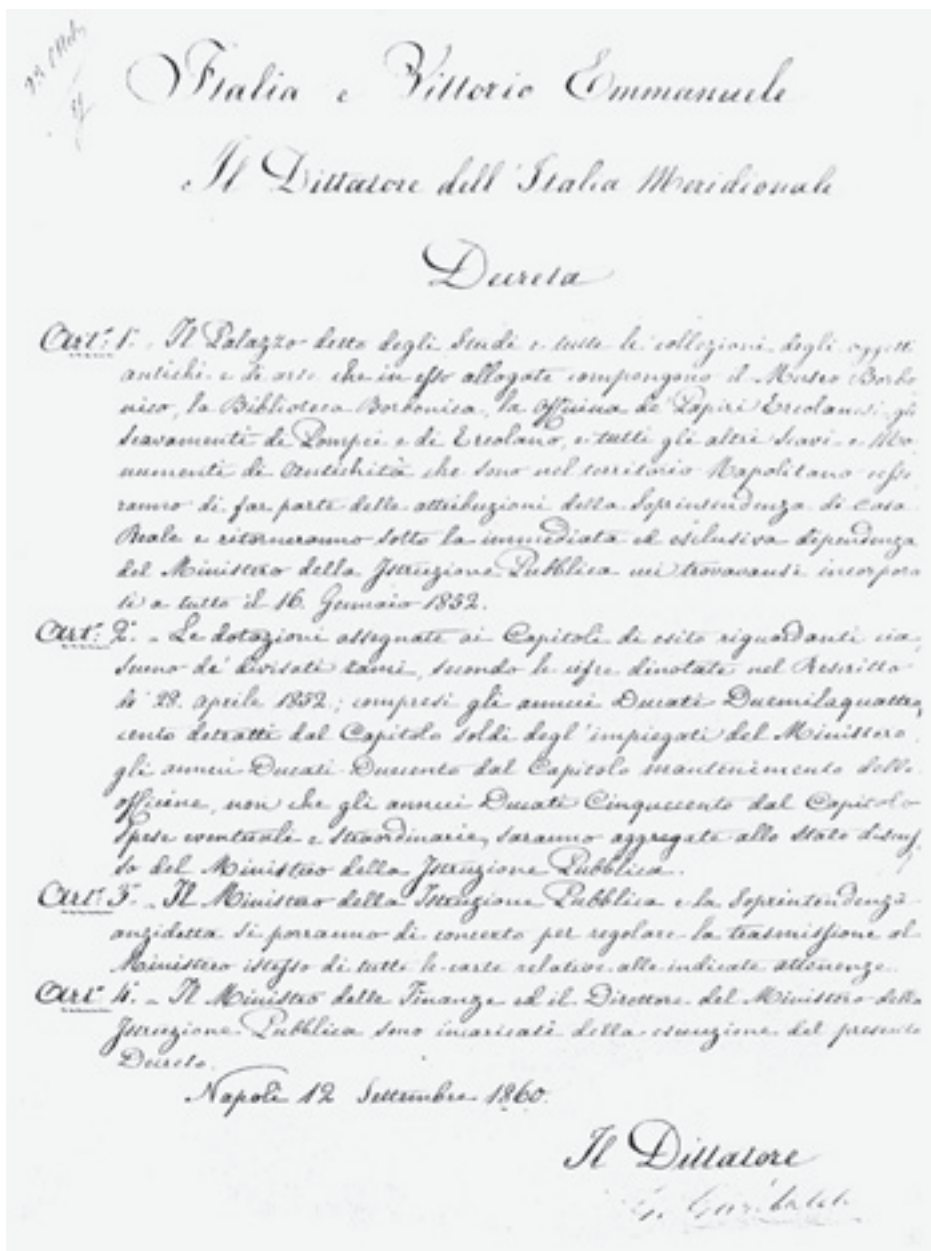 Italia e Vittorio Emmanuele
Il Dittatore dell'Italia Meridionale
Decreta
Art.° 1.° Il Palazzo detto degli Studi e tutte le collezioni degli oggetti
antichi e di arte che in esso allogate compongono il Museo Borbo
nico, la Biblioteca Borbonica, la officina de' Papiri Ercolanesi gli
scavamenti di Pompei e di Ercolano, e tutti gli altri scavi e Mo
numenti di antichità che sono nel territorio Napolitano cesse
ranno di far parte delle attribuzioni della Soprintendenza di casa
Reale e ritorneranno sotto la immediata ed esclusiva dipendenza
del Ministero della Istruzione Pubblica cui trovavansi incorpora
ti a tutto il 16 Gennaio 1852.
Art.° 2.° Le dotazioni assegnate ai Capitoli di esito riguardanti cia
scuno de' divisati rami, secondo le cifre dinotate nel Rescritto
de' 28 aprile 1852; compresi gli annui Ducati Duemilaquattro
cento detratti dal Capitolo soldi degl'impiegati del Ministero,
gli annui Ducati Duecento dal Capitolo mantenimento delle
officine, non che gli annui Ducati Cinquecento dal Capitolo
spese eventuali e straordinarie, saranno aggregate allo Stato discus
so del Ministero della Istruzione Pubblica.
Art.° 3.° Il Ministero della Istruzione Pubblica e la Soprintendenza
anzidetta si porranno di concerto per regolare la trasmissione al
Ministero istesso di tutte le carte relative alle indicate attenenze.
Art.° 4.° Il Ministro delle Finanze ed il Direttore del Ministero della
Istruzione Pubblica sono incaricati della esecuzione del presente
Decreto.
Napoli 12 Settembre 1860.
Il Dittatore
G. Garibaldi